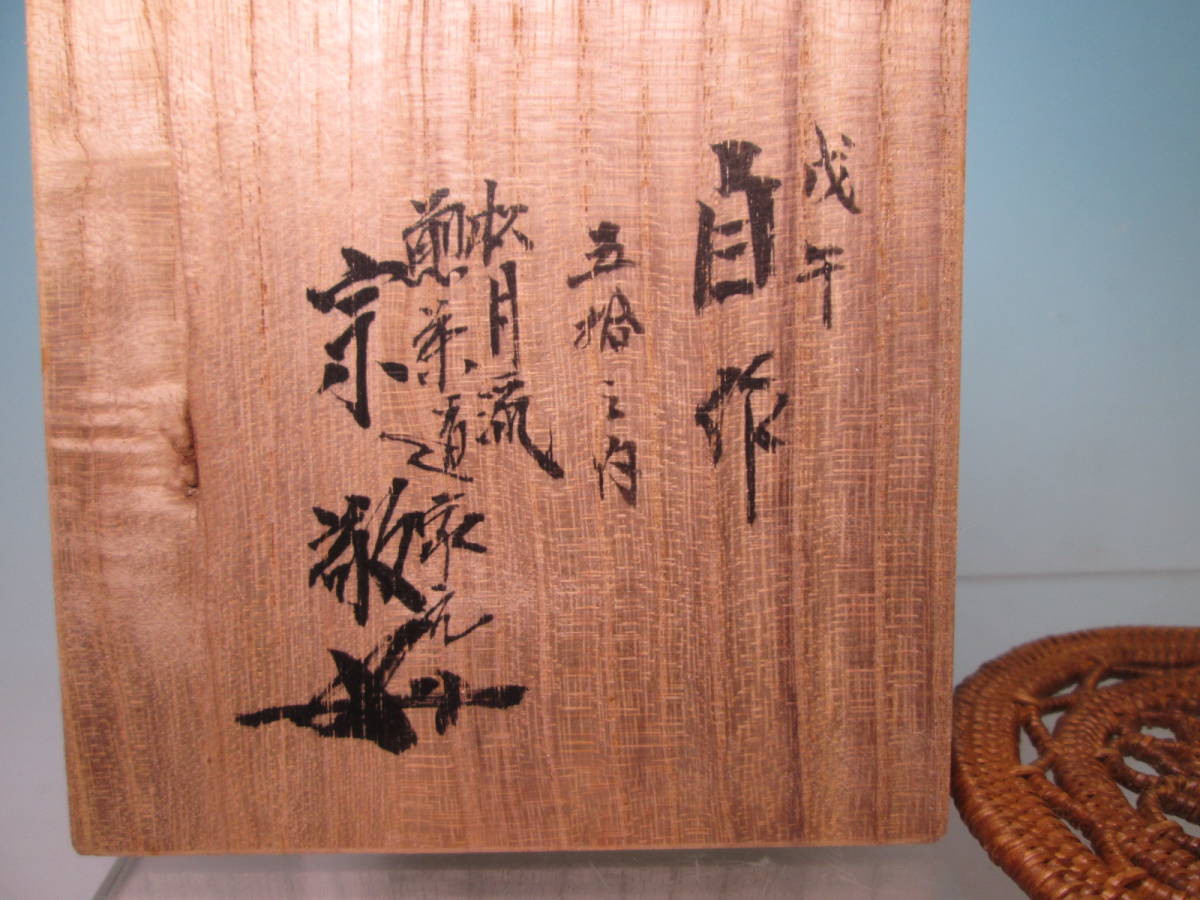 戊午
自作
五拾之内
松月流
煎茶道家元
宗敬